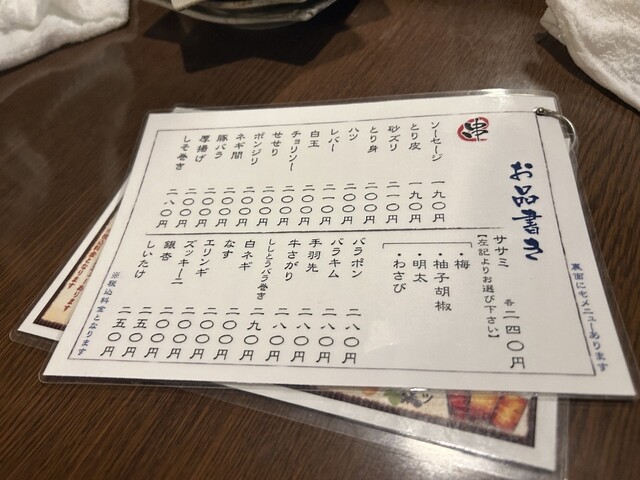 お品書き
裏面にもメニューあります
ササミ 各二四〇円
【左記よりお選び下さい】
・梅
・柚子胡椒
・明太
・わさび
串
ソーセージ 一九〇円
とり皮 一九〇円
砂ズリ 二一〇円
とり身 二〇〇円
ハツ 二〇〇円
レバー 二一〇円
白玉 二〇〇円
チョリソー 二〇〇円
せせり 二〇〇円
ボンジリ 二〇〇円
ネギ間 二〇〇円
豚バラ 二〇〇円
厚揚げ 二〇〇円
しそ巻き 二八〇円
バラポン 二八〇円
バラキム 二八〇円
手羽先 二八〇円
牛さがり 二八〇円
ししとうバラ巻き 二九〇円
白ネギ 二〇〇円
なす 二〇〇円
エリンギ 二〇〇円
ズッキーニ 二〇〇円
銀杏 二五〇円
しいたけ 二五〇円
※税込料金となります